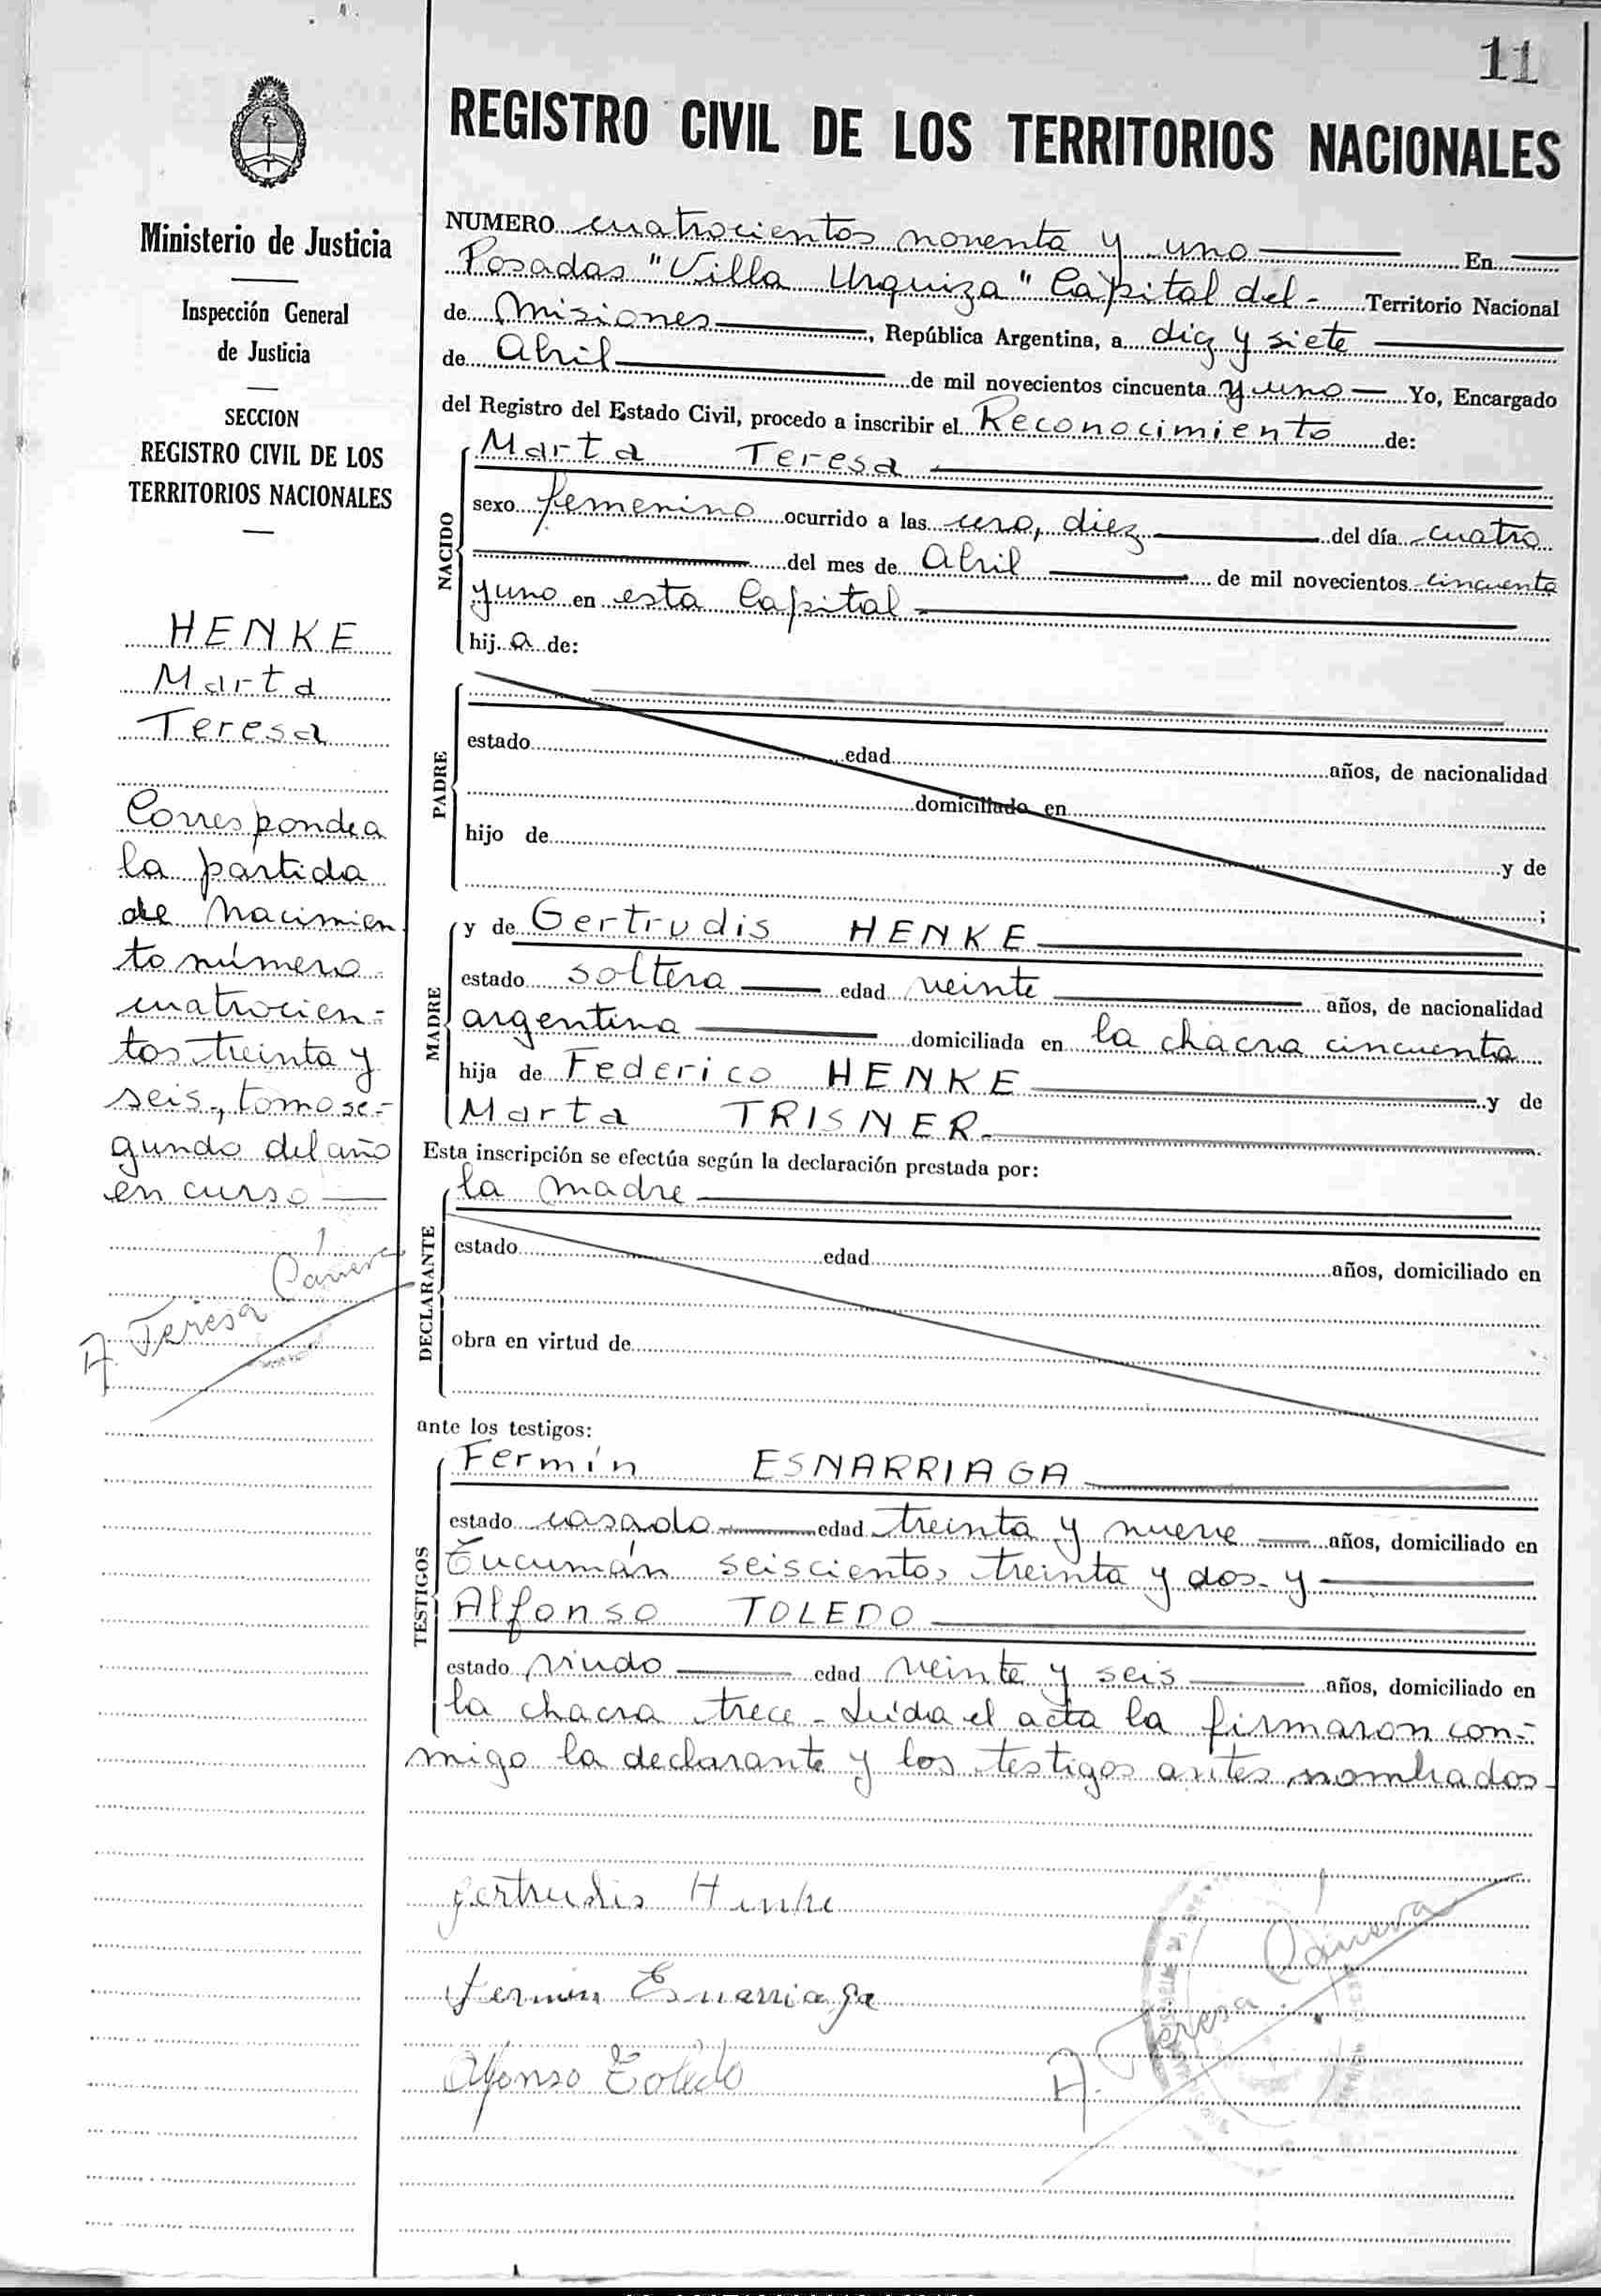 11
REGISTRO CIVIL DE LOS TERRITORIOS NACIONALES
Ministerio de Justicia
Inspección General
de Justicia
SECCION
REGISTRO CIVIL DE LOS
TERRITORIOS NACIONALES
HENKE
Marta
Teresa
Corresponde a
la partida
de nacimien
to número
cuatrocien-
tos treinta y
seis, tomo se-
gundo del año
en curso
A. Teresa
NUMERO cuatrocientos noventa y uno En
Posadas "Villa Urquiza" Capital del - Territorio Nacional
de Misiones, República Argentina, a diez y siete
de Abril de mil novecientos cincuenta y uno Yo, Encargado
del Registro del Estado Civil, procedo a inscribir el Reconocimiento de:
NACIDO
Marta Teresa
sexo femenino ocurrido a las una, diez del día cuatro
del mes de Abril de mil novecientos cincuenta
y uno en esta Capital
hij a de:
PADRE
estado edad años, de nacionalidad
domiciliado en
hijo de y de
;
MADRE
y de Gertrudis HENKE
estado soltera edad veinte años, de nacionalidad
argentina domiciliada en la chacra cincuenta
hija de Federico HENKE y de
Marta TRISNER.
Esta inscripción se efectúa según la declaración prestada por:
DECLARANTE
la madre
estado edad años, domiciliado en
obra en virtud de
ante los testigos:
TESTIGOS
Fermín ESNARRIAGA
estado casado edad treinta y nueve años, domiciliado en
Tucumán seiscientos treinta y dos - y
Alfonso TOLEDO
estado viudo edad veinte y seis años, domiciliado en
la chacra trece - Leída el acta la firmaron con-
migo la declarante y los testigos antes nombrados -
Gertrudis Henke
Fermin Esnarriaga
Alfonso Toledo
A. Teresa